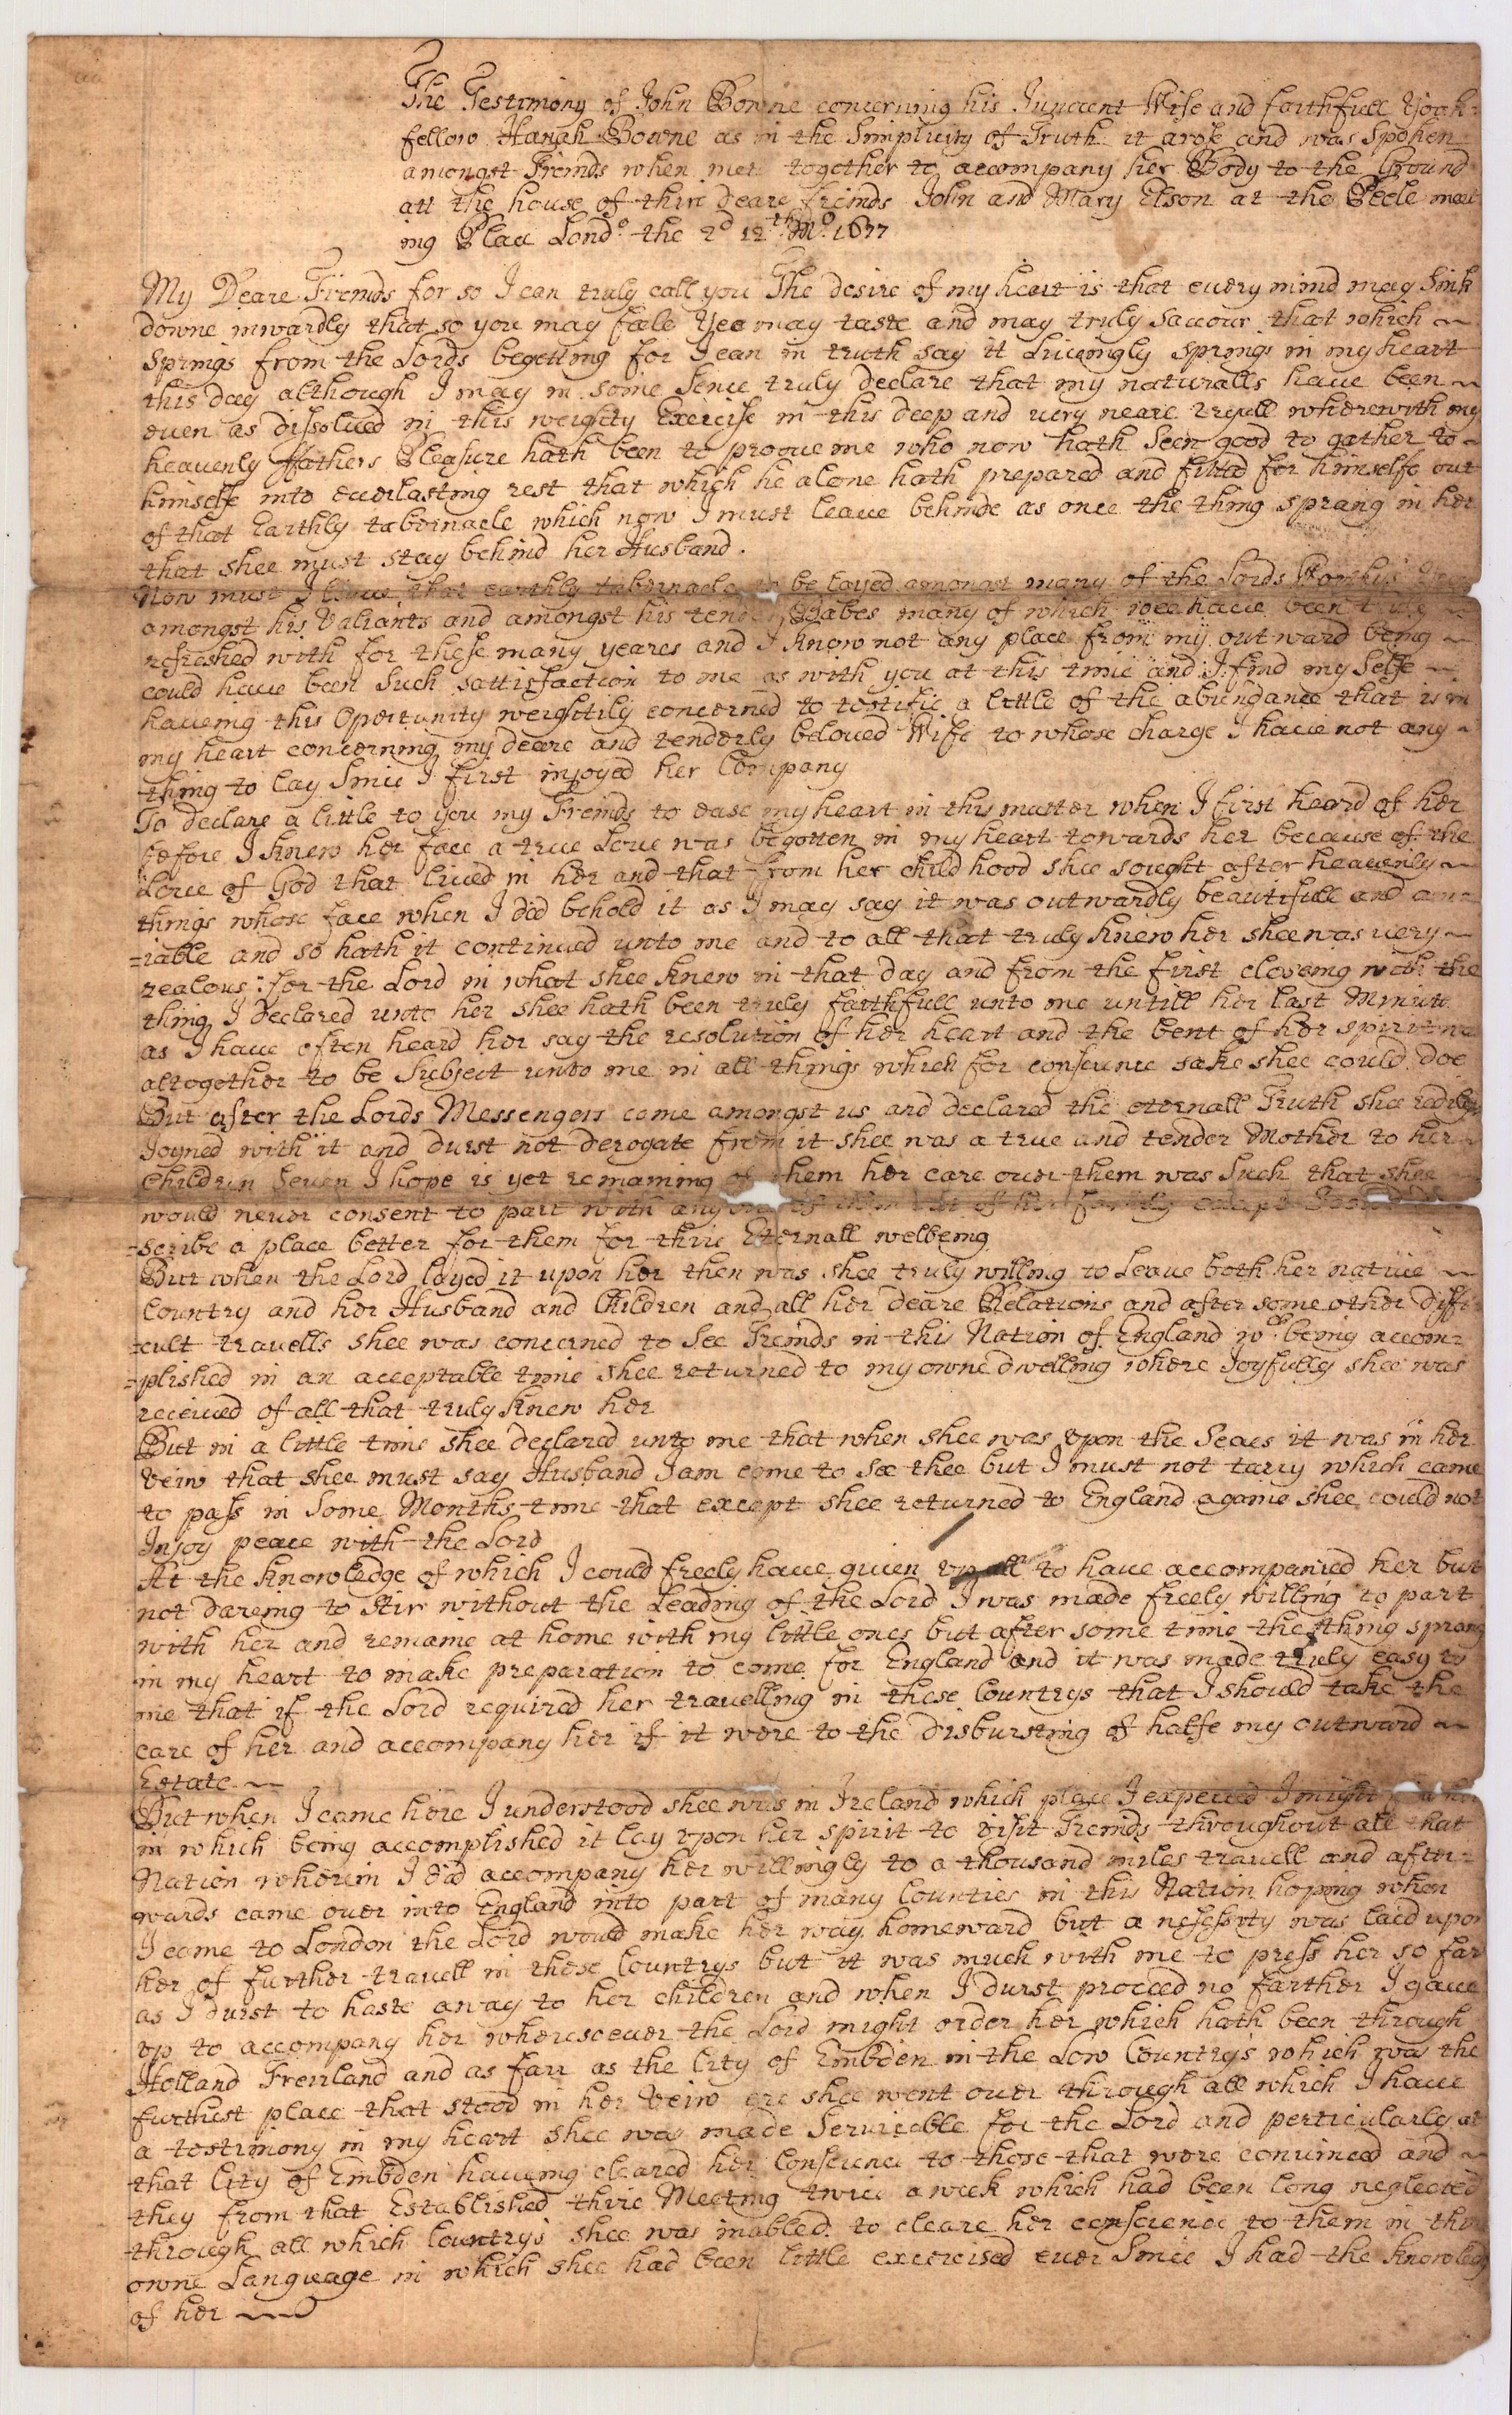 The Testimony of John Bowne concerning his Innocent Wife and faithfull Yoak=
fellow Hanah Bowne as in the Simplicity of Truth it arose and was Spoken
amongst Freinds when met together to accompany her Body to the Ground
att the house of thire deare freinds John and Mary Elson at the Peele meet
ing Place Londo. the 2d 12th Mo. 1677
My Deare Freinds for so I can truly call you The desire of my heart is that euery mind may Sink
downe inwardly that so you may feele Yee may taste and may truly Sauour that which
springs from the Lords begetting for I can in truth say it Liueingly springs in my heart
this day although I may in some Sence truly declare that my naturalls haue been
euen as dissolued in this weighty Exercise in this deep and uery neare tryall wherewith my
heauenly ffathers Pleasure hath been to prooue me who now hath Seen good to gather to
himselfe into euerlasting rest that which he alone hath prepared and fitted for himselfe out
of that Earthly tabernacle which now I must leaue behinde as once the thing sprang in her
that shee must stay behind her Husband.
Now must I leaue that earthly tabernacle to be layed amongst many of the Lords Worthys
amongst his Valiants and amongst his tender Babes many of which wee haue been truly
refreshed with for these many yeares and I know not any place from my outward being
could haue been Such sattisfaction to me as with you at this time and I find my Selfe
haueing this Oportunity weightily concerned to testifie a little of the abundance that is in
my heart concerning my deare and tenderly beloued Wife to whose charge I haue not any
thing to lay Since I first injoyed her Company
To declare a little to you my Freinds to ease my heart in this matter when I first heard of her
before I knew her face a true Loue was begotten in my heart towards her because of the
Loue of God that liued in her and that from her child hood shee sought after heauenly
things whose face when I did behold it as I may say it was outwardly beautifull and am
=iable and so hath it continued unto me and to all that truly knew her shee was uery
zealous: for the Lord in what shee knew in that day and from the first closeing with the
thing I declared unto her shee hath been truly faithfull unto me untill her last Minute
as I haue often heard her say the resolution of her heart and the bent of her spirit
altogether to be Subject unto me in all things which for conscience sake shee could doe
But after the Lords Messengers came amongst us and declared the eternall Truth shee redily
Joyned with it and durst not derogate from it shee was a true and tender Mother to her
Children Seuen I hope is yet remaining of them her care ouer them was Such that shee
would neuer consent to part with any one of them out of her family except I could
=scribe a place better for them for thire Eternall welbeing
But when the Lord layed it upon her then was shee truly willing to Leaue both her natiue
Country and her Husband and Children and all her deare Relations and after some other diffi
=cult trauells shee was concerned to See Freinds in this Nation of England wch being accom=
=plished in an acceptable time shee returned to my owne dwelling where Joyfully shee was
receiued of all that truly knew her
But in a little time shee declared unto me that when shee was upon the Seaes it was in her
veiw that shee must say Husband I am come to See thee but I must not tarry which came
to pass in Some Months time that except shee returned to England againe shee could not
Injoy peace with the Lord
At the knowledge of which I could freely haue giuen up all to haue accompanied her but
not dareing to Stir without the Leading of the Lord I was made freely willing to part
with her and remaine at home with my little ones but after some time the thing sprang
in my heart to make preparation to come for England and it was made truly easy to
me that if the Lord required her trauelling in these Countrys that I should take the
care of her and accompany her if it were to the disbursting of halfe my outward
Estate
But when I came here I understood shee was in Ireland which place I expected I might
in which being accomplished it lay upon her spirit to visit Freinds throughout all that
Nation wherein I did accompany her willingly to a thousand miles trauell and after=
wards came ouer into England into part of many Counties in this Nation hoping when
I came to London the Lord would make her way homeward but a nessesity was laid upon
her of further trauell in these Countrys but it was much with me to press her so far
as I durst to haste away to her children and when I durst proceed no farther I gaue
up to accompany her wheresoeuer the Lord might order her which hath been through
Holland Freizland and as farr as the City of Embden in the Low Countrys which was the
furthest place that stood in her Veiw ere shee went ouer through all which I haue
a testimony in my heart shee was made Seruiceable for the Lord and perticularly at
that City of Embden haueing cleared her Conscience to those that were conuinced and
they from that Established thire Meeting twice a week which had been long neglected
through all which Countrys shee was inabled to cleare her conscience to them in thire
owne Language in which shee had been little exercised euer Since I had the knowledg
of her